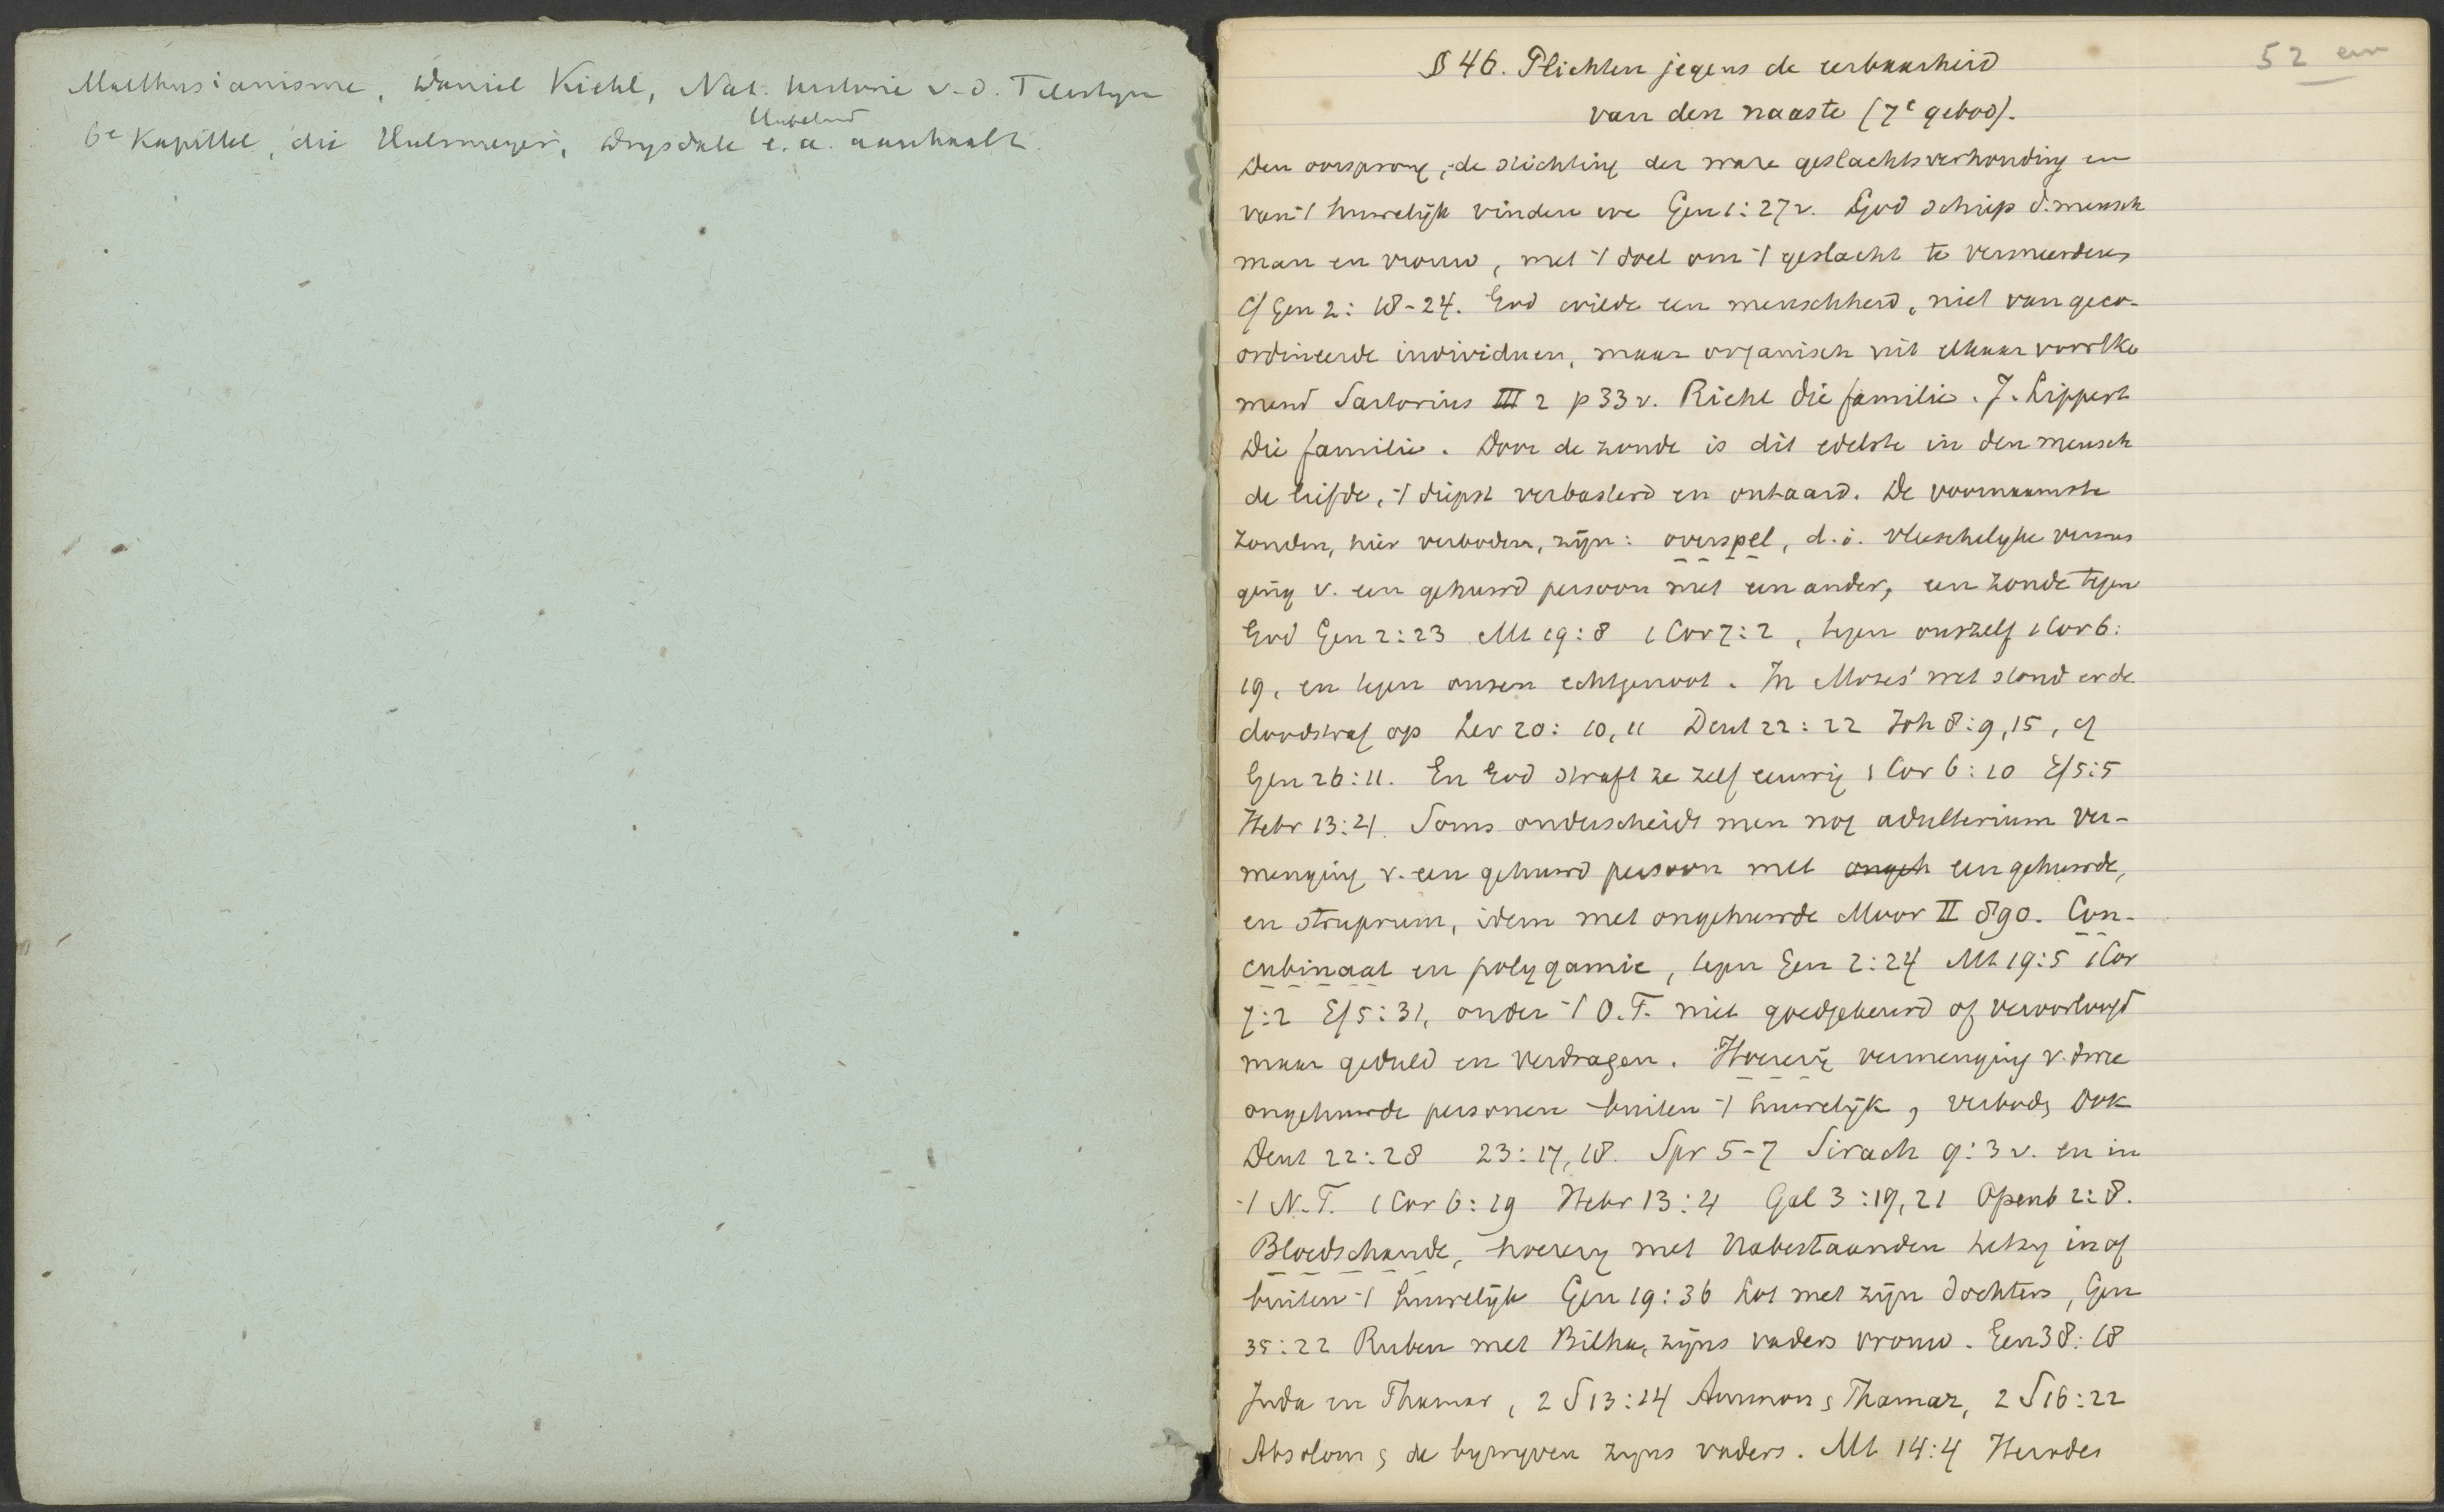 Malthusianisme, Daniel Kiehl, Nat. historie v. d.
6e Kapittel, die Hulsmeyer, Drysdale e. a. aanhaalt.
52 en
§ 46. Plichten jegens de eerbaarheid
van den naaste (7e gebod).
Den oorsprong, de stichting der ware geslachtsverhouding en
van 't huwelijk vinden we Gen 1:27v. God schiep d. mensch
man en vrouw, met 't doel om 't geslacht te vermeerderen
cf Gen 2: 18-24. God wilde een menschheid, niet van geco-
ordineerde individuen, maar organisch uit elkaar voortko
mend Sartorius III 2 p 33v. Riehl die familie. J. Lippert
Die familie. Door de zonde is dit edelste in den mensch
de liefde, 't diepst verbasterd en ontaard. De voornaamste
zonden, hier verboden, zijn: overspel, d. i. vleeschelyke vermen
ging v. een gehuwd persoon met een ander, een zonde tegen
God Gen 2:23 Mt 19:8 1 Cor 7:2, tegen onszelf 1 Cor 6:
19, en tegen onzen echtgenoot. In Mozes' wet stond er de
doodstraf op Lev 20: 10, 11 Deut 22: 22 Joh 8: 9, 15, cf
Gen 26:11. En God straft ze zelf eeuwig 1 Cor 6: 10 Ef 5:5
Hebr 13:4. Soms onderscheidt men nog adulterium ver-
menging v. een gehuwd persoon met ongeh een gehuwde,
en struprum, idem met ongehuwde Moor II 890. Con-
cubinaat en polygamie, tegen Gen 2:24 Mt 19:5 1 Cor
7:2 Ef 5:31, onder 't O. T. niet goedgekeurd of veroorloofd
maar geduld en verdragen. Hoererij vermenging v. twee
ongehuwde personen buiten 't huwelijk, verboden ook
Deut 22:28 23:17, 18. Spr 5-7 Sirach 9:3 v. en in
't N. T. 1 Cor 6: 19 Hebr 13:4 Gal 3:19, 21 Openb 2:8.
Bloedschande, hoerery met Nabestaanden hetzy in of
buiten 't huwelijk Gen 19:36 Lot met zijn dochters, Gen
35:22 Ruben met Bilha, zijns vaders vrouw. Gen 38:18
Juda en Thamar, 2 S 13:14 Ammon & Thamar, 2 S 16:22
Absolom & de bywyven zyns vaders. Mt 14:4 Herodes